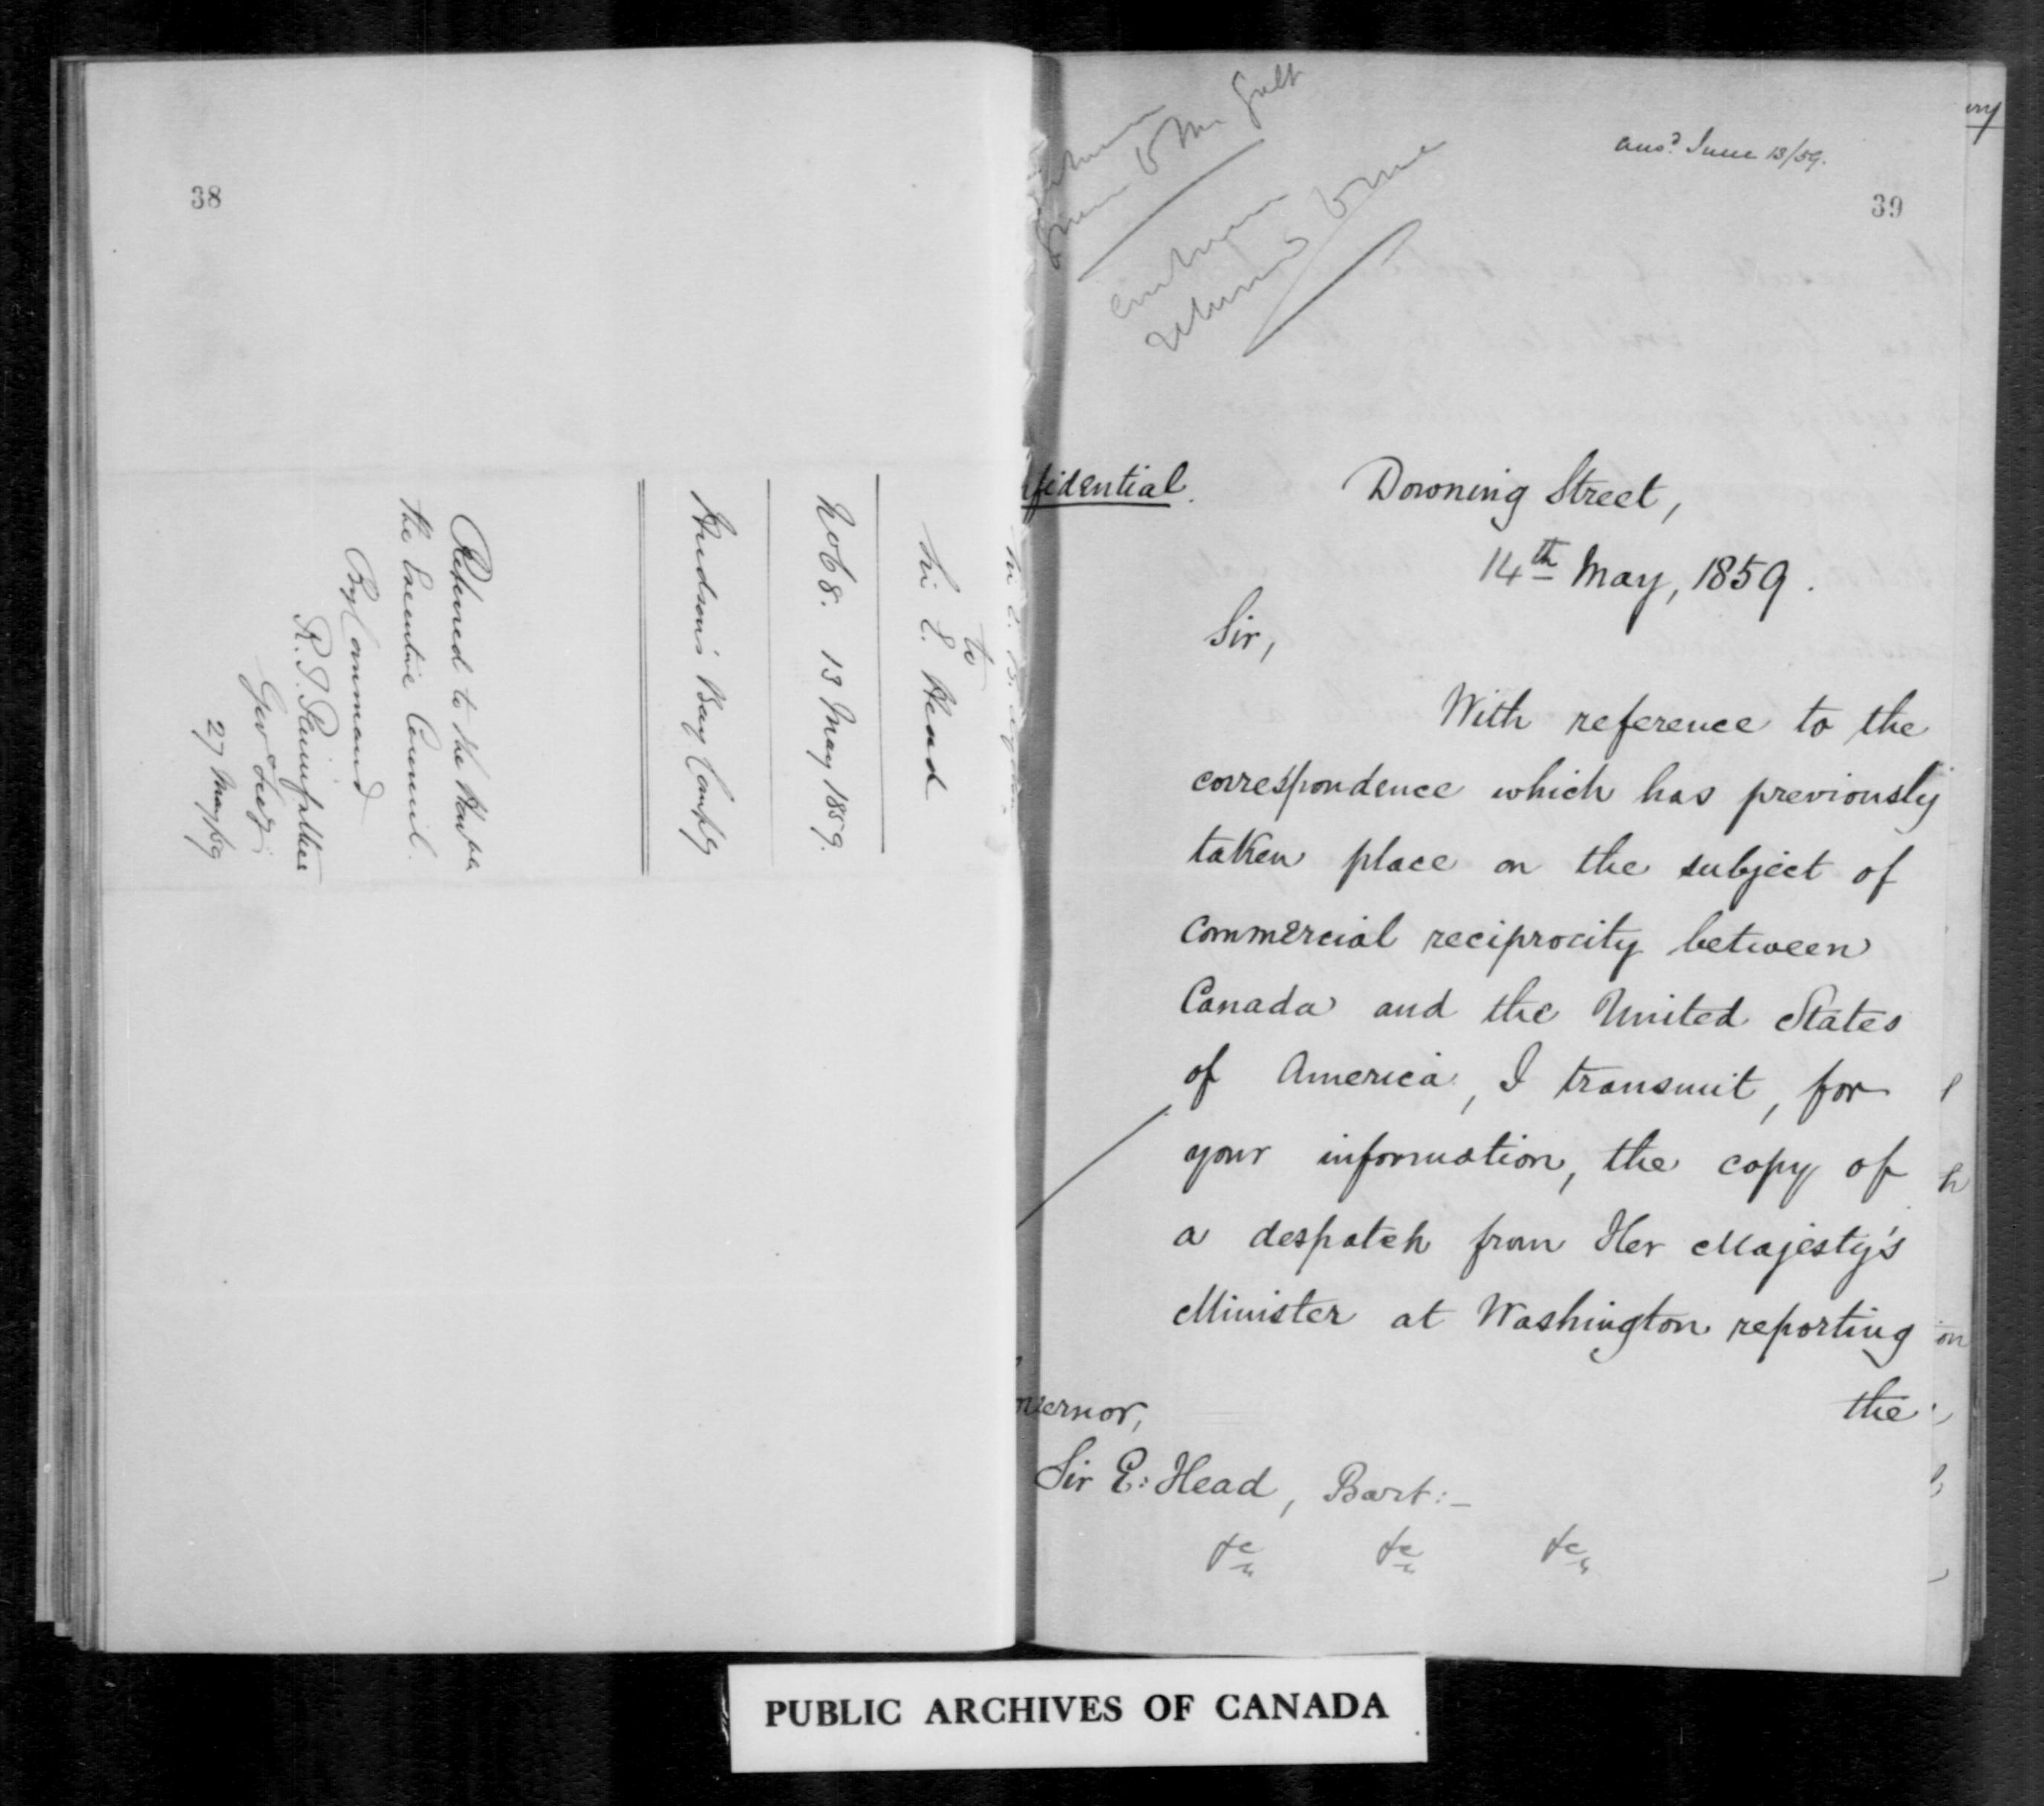 38
Sir E. B. Lytton
to
Sir E. Head
No 68. 13 May 1859.
Hudson's Bay Compy
Referred to the Honble
the Executive Council.
By Command
R. T. Pennefather
Govr Secy
27 May/59
given to Mr Galt
returned to me
ansd June 13/59.
39
nfidential.
Downing Street,
14th May, 1859.
Sir,
With reference to the
correspondence which has previously
taken place on the subject of
Commercial reciprocity between
Canada and the United States
of America, I transmit, for
your information, the copy of
a despatch from Her Majesty's
Minister at Washington reporting
the
overnor,
Sir E: Head, Bart:-
&c &c &c
PUBLIC ARCHIVES OF CANADA